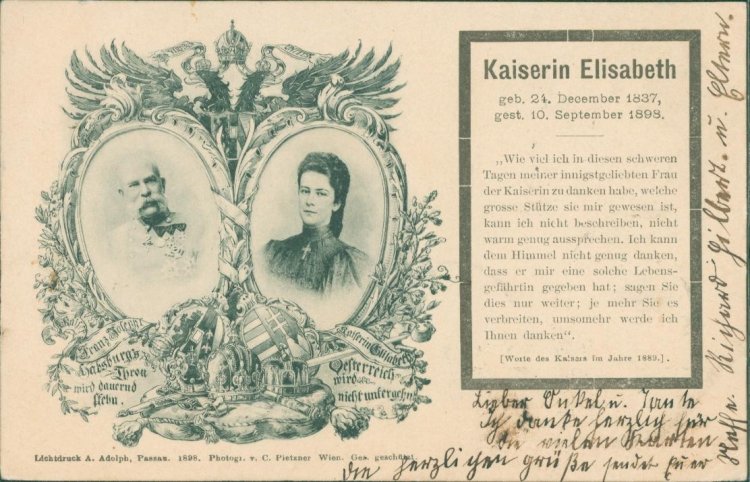 Kaiserin Elisabeth
geb. 24. December 1837,
gest. 10. September 1898.
„Wie viel ich in diesen schweren
Tagen meiner innigstgeliebten Frau
der Kaiserin zu danken habe, welche
grosse Stütze sie mir gewesen ist,
kann ich nicht beschreiben, nicht
warm genug aussprechen. Ich kann
dem Himmel nicht genug danken,
dass er mir eine solche Lebens-
gefährtin gegeben hat; sagen Sie
dies nur weiter; je mehr Sie es
verbreiten, umsomehr werde ich
Ihnen danken“.
[Worte des Kaisers im Jahre 1889.].
Franz Josef I.
Habsburg's
Thron
wird dauernd
steh'n.
Kaiserin Elisabeth
Oesterreich
wird
nicht untergeh'n
Lieber Onkel u. Tante
Ich danke herzlich für
die vielen Karten
die herzlichen Grüße sendet Euer
Neffe Richard Hilbert u. Eltern.
Lichtdruck A. Adolph, Passau. 1898. Photogr. v. C. Pietzner Wien. Ges. geschützt.